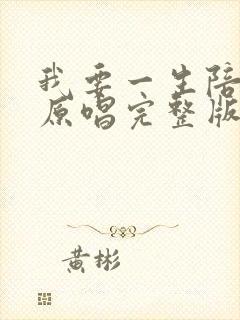 我要一生陪
原唱完整版
黄彬